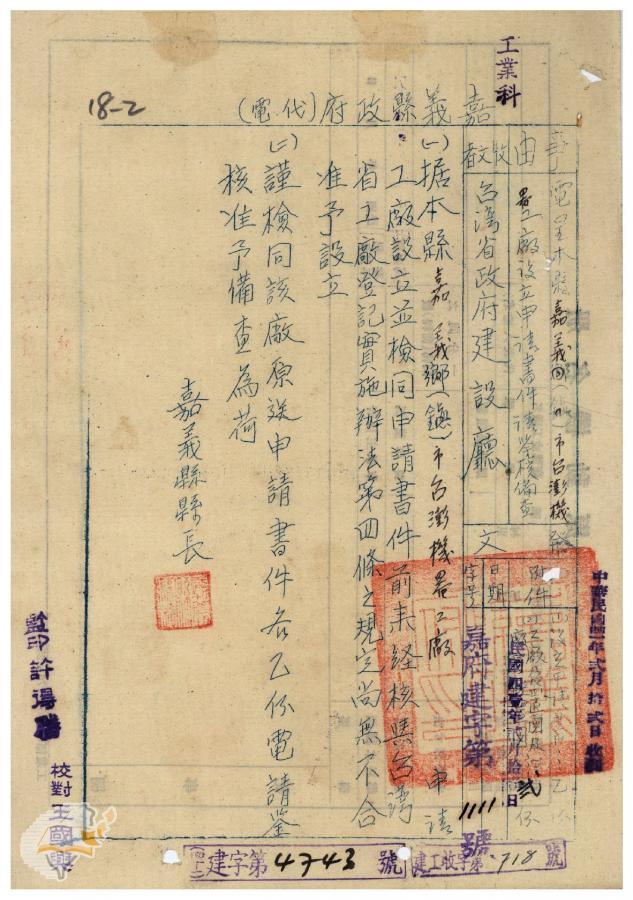 工業科
18-2
嘉義縣政府(代電)
事由
電呈本縣嘉義市台澎機
器工廠設立申請書件請鑒核備查
受文者
台灣省政府建設廳
附件
日期
字號
中華民國
年弍月拾弍日收到
民國四壹年
嘉府建字第1111號
(一)据本縣嘉義鄉(鎮)市台澎機器工廠申請
工廠設立並檢同申請書件前來経核與台湾
省工廠登記實施辦法第四條之規定尚無不合
准予設立
(二)謹檢同該廠原送申請書件各乙份電請鑒
核准予備查為荷
嘉義縣縣長
監印許得勝
校對王國興
建字第4743號
建工收字第718號